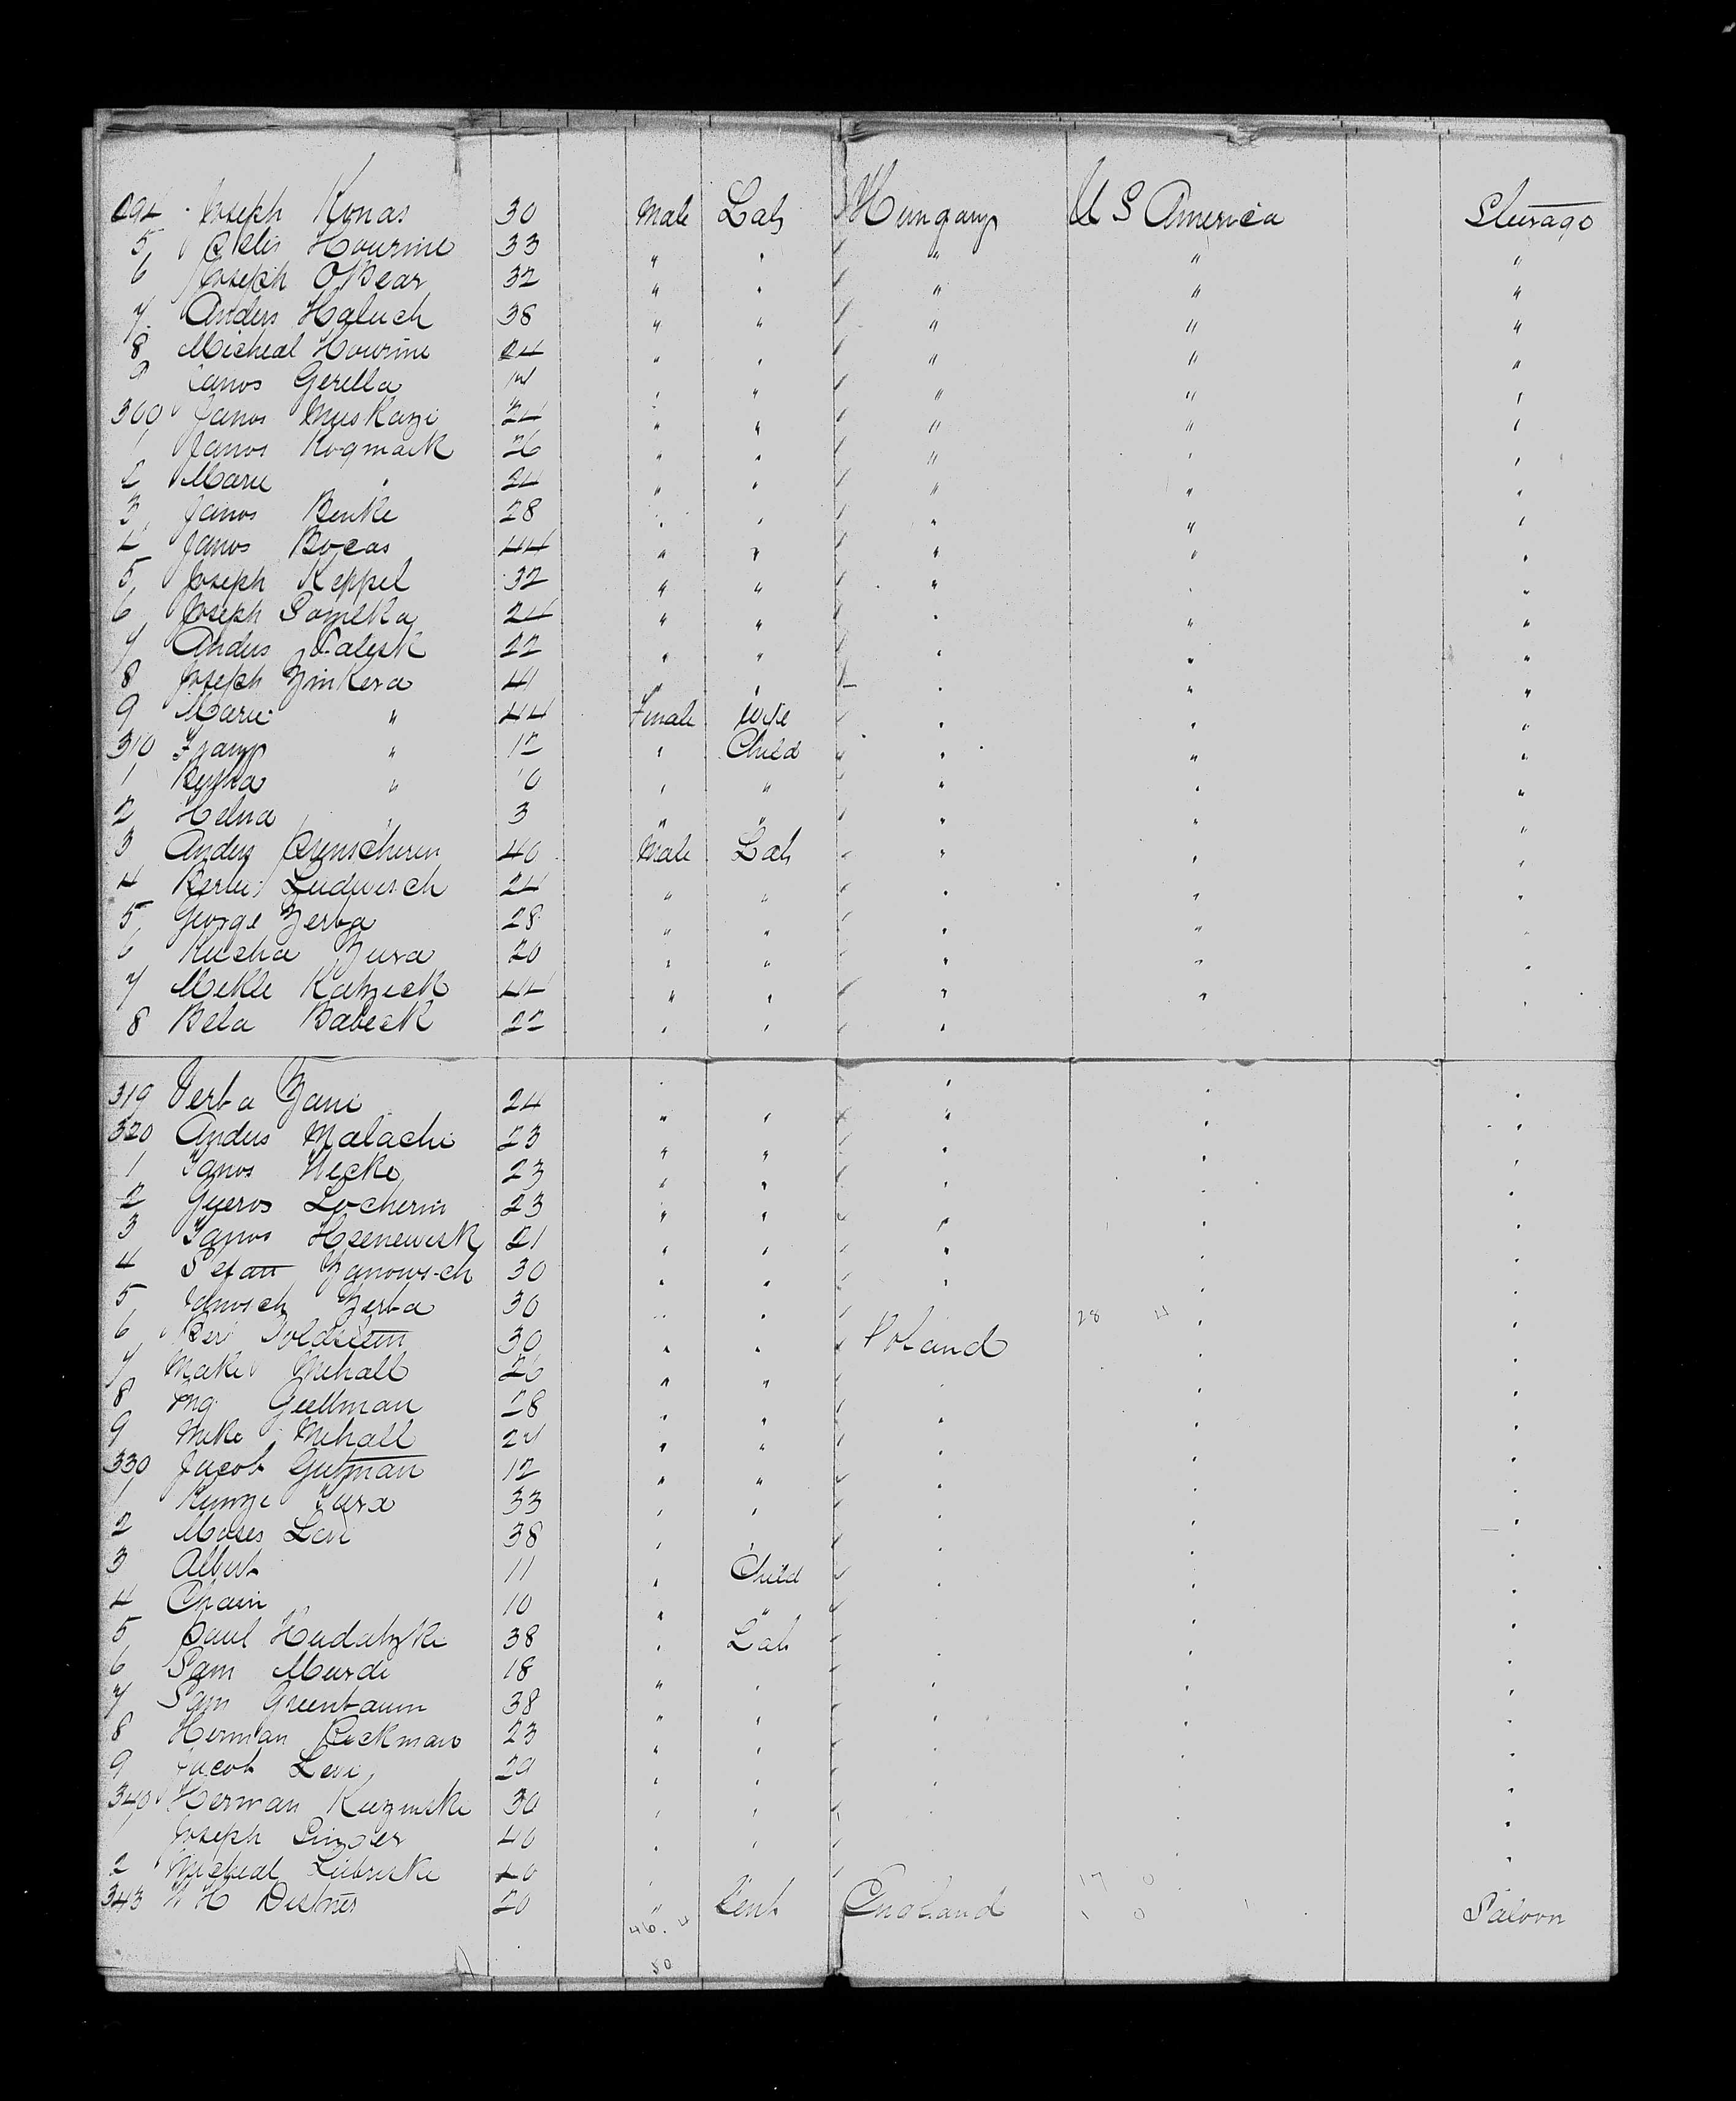 294 Joseph Konas 30 Male Lab Hungary U S America Steerage
5 Helis Hourine 33 " " " " "
6 Joseph OBear 32 " " " " "
7 Anders Haluch 38 " " " " "
8 Micheal Hourine 24 " " " " "
9 Janos Gerella " " " " "
300 Janos Muskazi 24 " " " " "
1 Janos Kogmack 26 " " " " "
2 Marie " 24 " " " " "
3 Janos Benke 28 " " " " "
4 Janos Bocas 44 " " " " "
5 Joseph Keppel 32 " " " " "
6 Joseph 24 " " " " "
7 Anders 22 " " " " "
8 Joseph Zinkera 41 " " " " "
9 Marie " 44 Female Wife " " "
310 Franz " 12 " Child " " "
1 " 10 " " " " "
2 Helna " 3 " " " " "
3 Anders 40 Male Lab " " "
4 Ludwisch 24 " " " " "
5 George Zerba 28 " " " " "
6 Kucha Zura 20 " " " " "
7 Mekle Katzeck 44 " " " " "
8 Bela Babeck 22 " " "
319 Verba Zani 24 " " " " "
320 Anders Malachi 23 " " " " "
1 Janos Hecke 23 " " " " "
2 Locherin 23 " " " " "
3 Janos 21 " " " " "
4 Stefan Zanowsch 30 " " " " "
5 Janosch Zerba 30 " " " "
6 Ber Goldstein 30 " " Poland 28 4 " "
7 Make Mehall 26 " " " " "
8 Gullman 28 " " " " "
9 Meke Mehall 24 " " " " "
330 Jacob Gutman 12 " " " " "
1 Kunze 33 " " " " "
2 Moses Levi 38 " " " " "
3 Albert 11 " Child " " "
4 Chain 10 " " " " "
5 Paul Hudatzke 38 " Lab " " "
6 Sam Murdi 18 " " " " "
7 Sam Greenbaum 38 " " " " "
8 Herman Beckman 23 " " " " "
9 Jacob Levi 29 " " " " "
340 Herman Kuzinske 30 " " " " "
1 Joseph Singer 40 " " " " "
2 Micheal Lubriske 40 " " 17 0 "
343 20 " Gent England 1 0 Saloon
46. 4
50